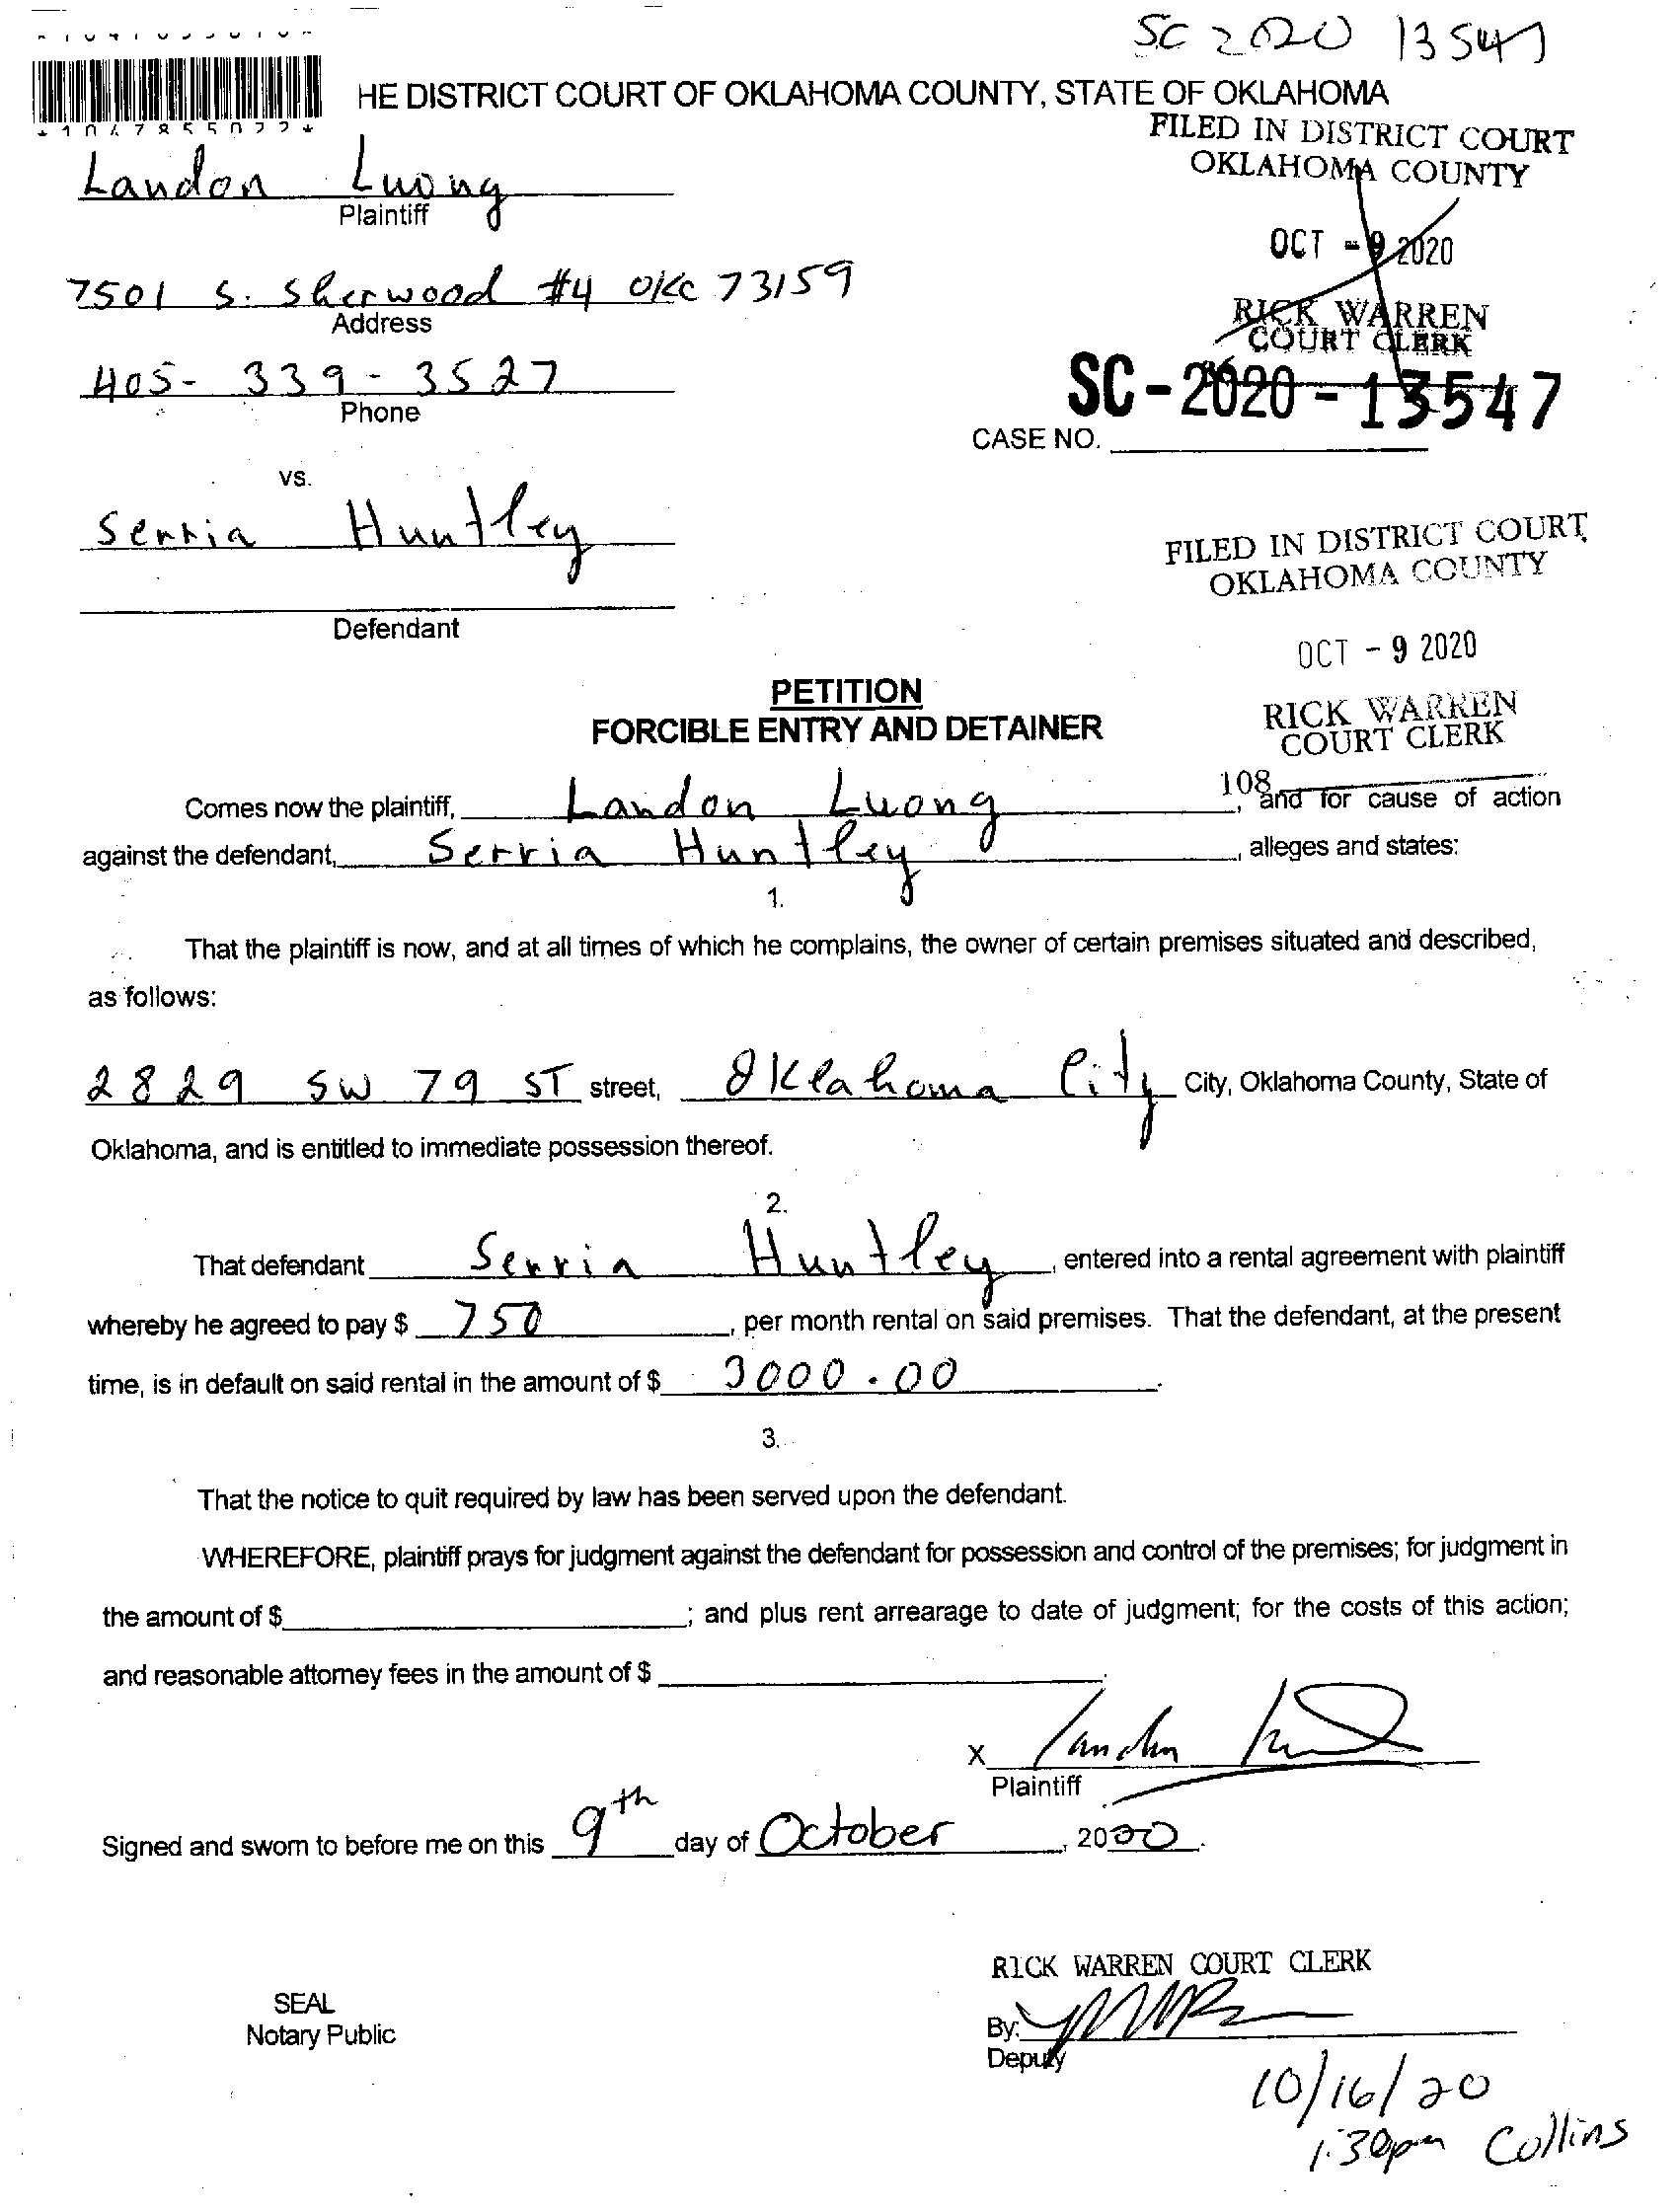 SC 2020 13547
HE DISTRICT COURT OF OKLAHOMA COUNTY, STATE OF OKLAHOMA
*1047855022*
FILED IN DISTRICT COURT
OKLAHOMA COUNTY
Landon Luong
Plaintiff
OCT - 9 2020
7501 S. Sherwood #4 OKC 73159
Address
RICK WARREN
COURT CLERK
405-339-3527
Phone
SC-2020-13547
CASE NO.
vs.
Serria Huntley
Defendant
FILED IN DISTRICT COURT
OKLAHOMA COUNTY
OCT - 9 2020
PETITION
FORCIBLE ENTRY AND DETAINER
RICK WARREN
COURT CLERK
108
Comes now the plaintiff, Landon Luong, and for cause of action
against the defendant, Serria Huntley, alleges and states:
1.
That the plaintiff is now, and at all times of which he complains, the owner of certain premises situated and described,
as follows:
2829 SW 79 ST street, Oklahoma City City, Oklahoma County, State of
Oklahoma, and is entitled to immediate possession thereof.
2.
That defendant Serria Huntley, entered into a rental agreement with plaintiff
whereby he agreed to pay $ 750, per month rental on said premises. That the defendant, at the present
time, is in default on said rental in the amount of $ 3000.00.
3.
That the notice to quit required by law has been served upon the defendant.
WHEREFORE, plaintiff prays for judgment against the defendant for possession and control of the premises; for judgment in
the amount of $; and plus rent arrearage to date of judgment; for the costs of this action;
and reasonable attorney fees in the amount of $.
X
Plaintiff
Signed and sworn to before me on this 9th day of October, 2020.
RICK WARREN COURT CLERK
SEAL
Notary Public
By:
Deputy
10/16/20
1:30pm Collins